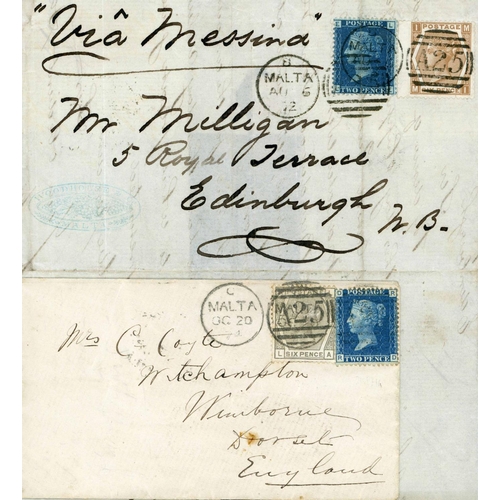 "Viâ Messina"
Mr Milligan
5 Royal Terrace
Edinburgh
N.B.
MALTA
AU 6
72
MALTA
A25
POSTAGE
TWO PENCE
POSTAGE
C
MALTA
OC 20
A25
L SIX PENCE A
POSTAGE
R TWO PENCE Q
Mrs C. Coyte
Witchampton
Wimborne
Dorset
England